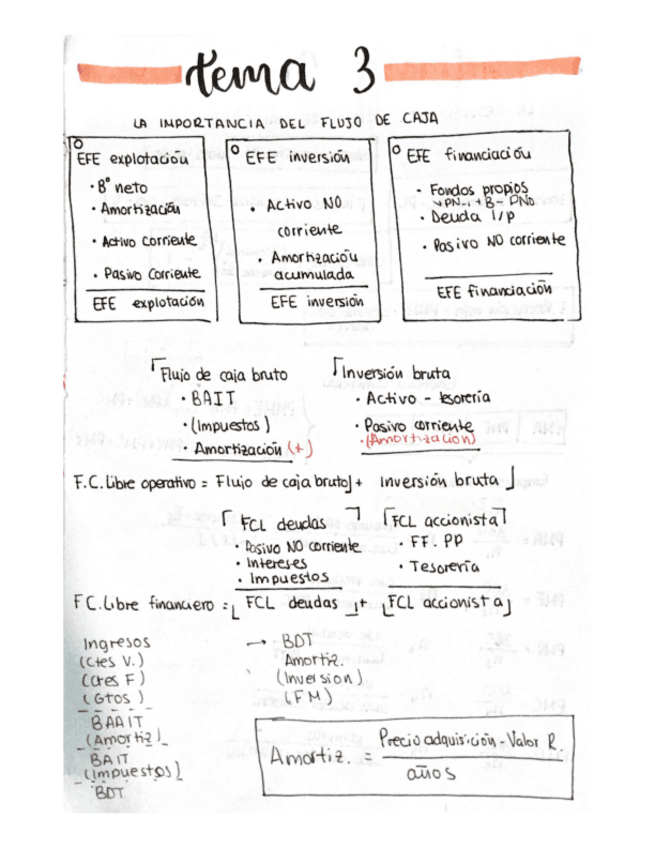 tema 3
LA IMPORTANCIA DEL FLUJO DE CAJA
EFE explotación
• Bº neto
• Amortización
• Activo Corriente
• Pasivo Corriente
EFE explotación
EFE inversión
• Activo NO
corriente
• Amortización
acumulada
EFE inversión
EFE financiación
• Fondos propios
↳PN-1 + B - PN0
• Deuda l/p
• Pasivo NO corriente
EFE financiación
Flujo de caja bruto
• BAIT
• (Impuestos)
• Amortización (+)
Inversión bruta
• Activo - tesorería
• Pasivo corriente
• (Amortización)
F.C. Libre operativo = Flujo de caja bruto + Inversión bruta
FCL deudas
• Pasivo NO corriente
• Intereses
• Impuestos
FCL accionista
• FF. PP
• Tesorería
FC. Libre financiero = FCL deudas + FCL accionista
Ingresos
(Ctes V.)
(Ctes F)
(Gtos)
BAAIT
(Amortiz)
BAIT
(Impuestos)
BDT
→ BDT
Amortiz.
(Inversion)
(FM)
Amortiz. = Precio adquisición - Valor R.
años